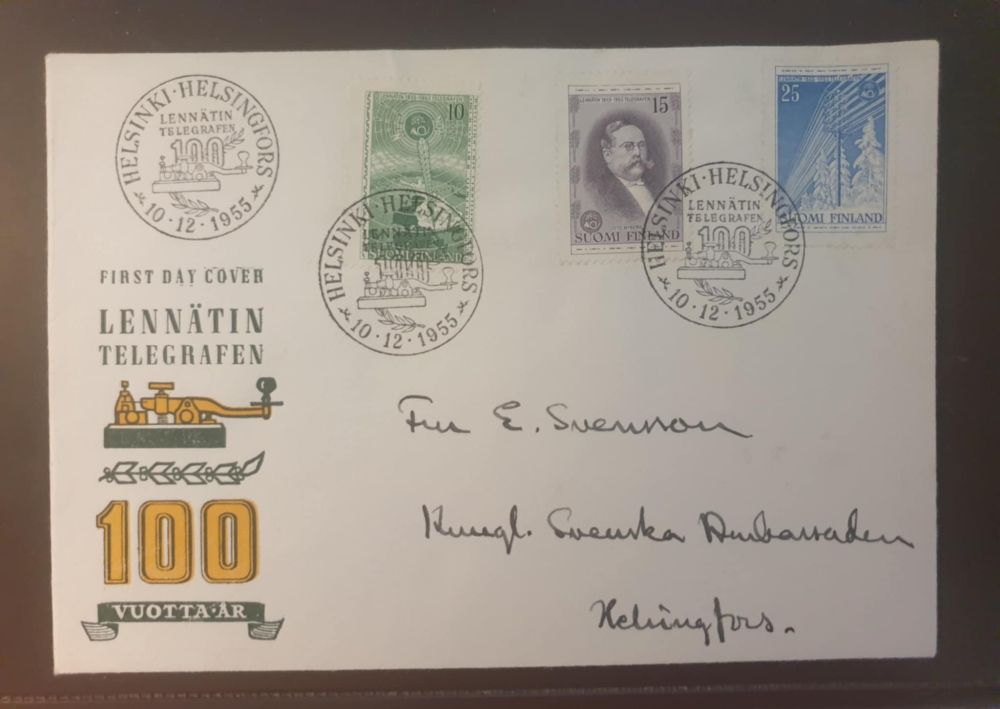 HELSINKI·HELSINGFORS
LENNÄTIN
TELEGRAFEN
100
10·12·1955
LENNÄTIN 1855-1955 TELEGRAFEN
10
SUOMI FINLAND
HELSINKI·HELSINGFORS
LENNÄTIN
TELEGRAFEN
100
10·12·1955
LENNÄTIN 1855-1955 TELEGRAFEN
15
OTTO NYBERG
SUOMI FINLAND
LENNÄTIN 1855-1955 TELEGRAFEN
25
SUOMI FINLAND
HELSINKI·HELSINGFORS
LENNÄTIN
TELEGRAFEN
100
10·12·1955
FIRST DAY COVER
LENNÄTIN
TELEGRAFEN
100
VUOTTA·ÅR
Fru E. Svensson
Kungl. Svenska Ambassaden
Helsingfors.